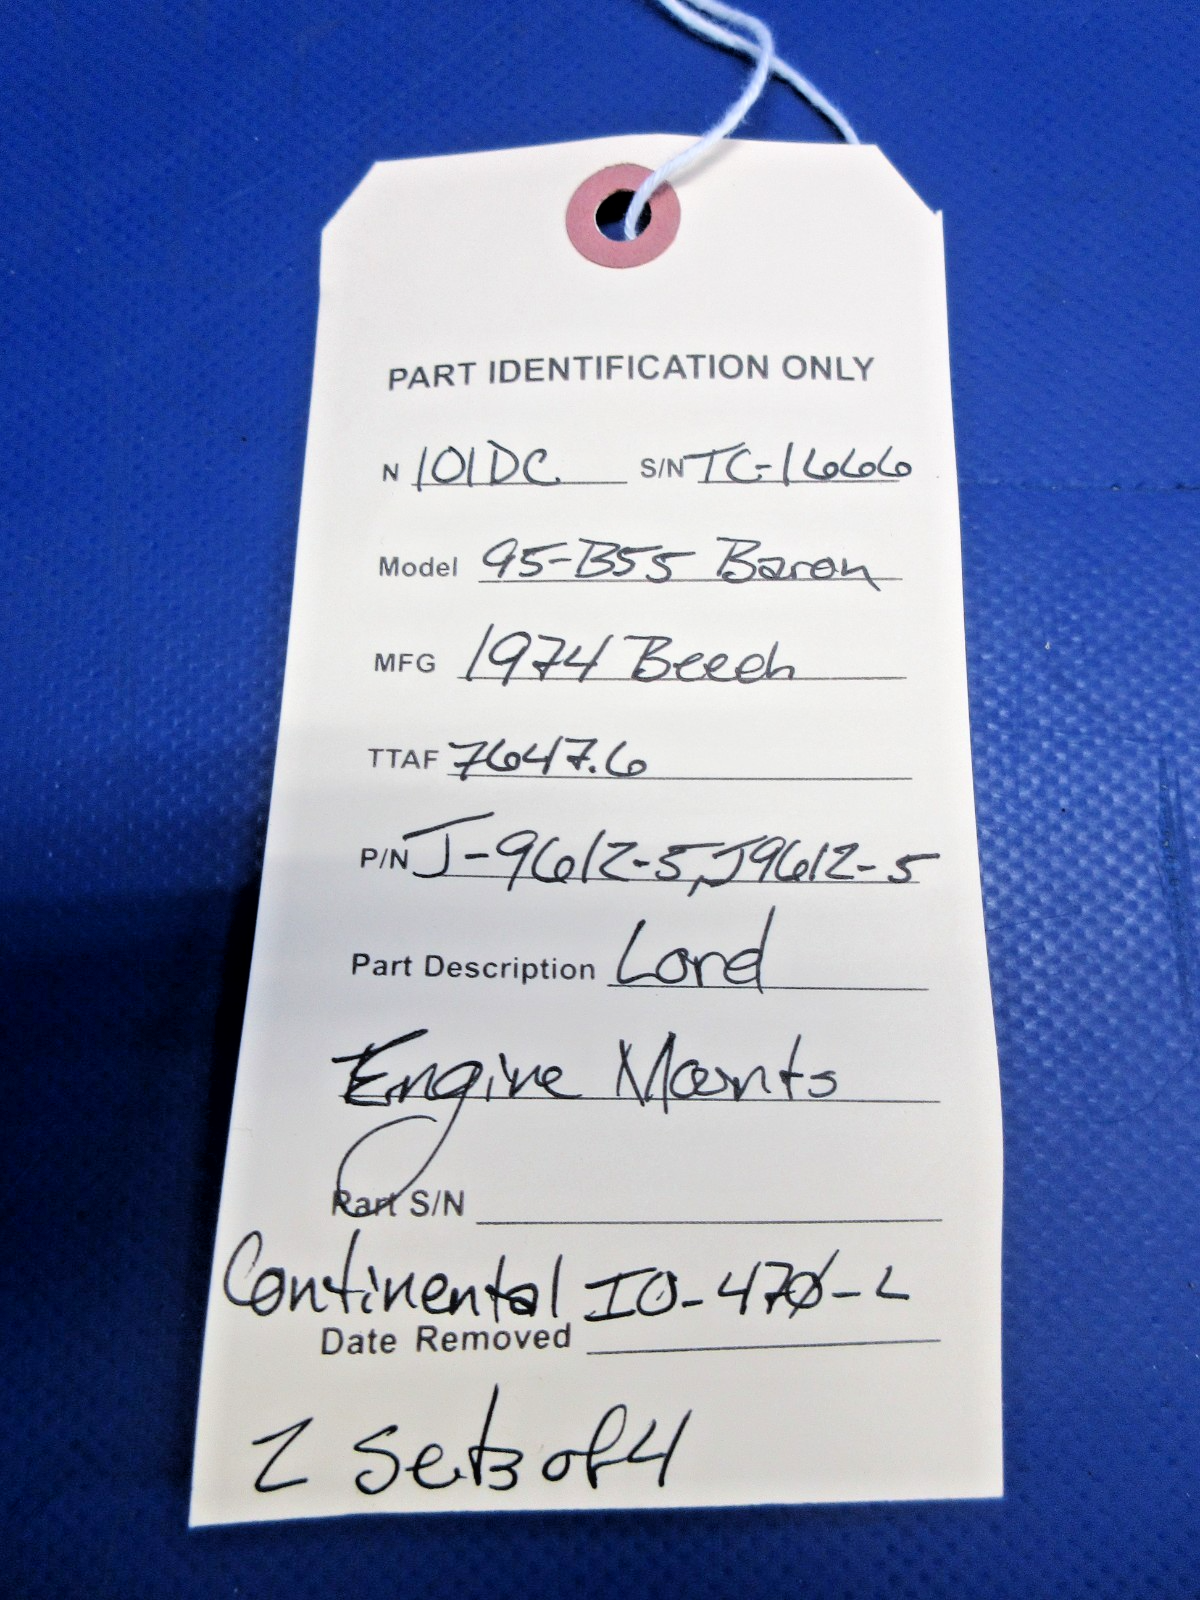 PART IDENTIFICATION ONLY
N 101DC S/N TC-1666
Model 95-B55 Baron
MFG 1974 Beech
TTAF 7647.6
P/N J-9612-5, J9612-5
Part Description Lord
Engine Mounts
Part S/N
Continental IO-470-L
Date Removed
2 Sets of 4